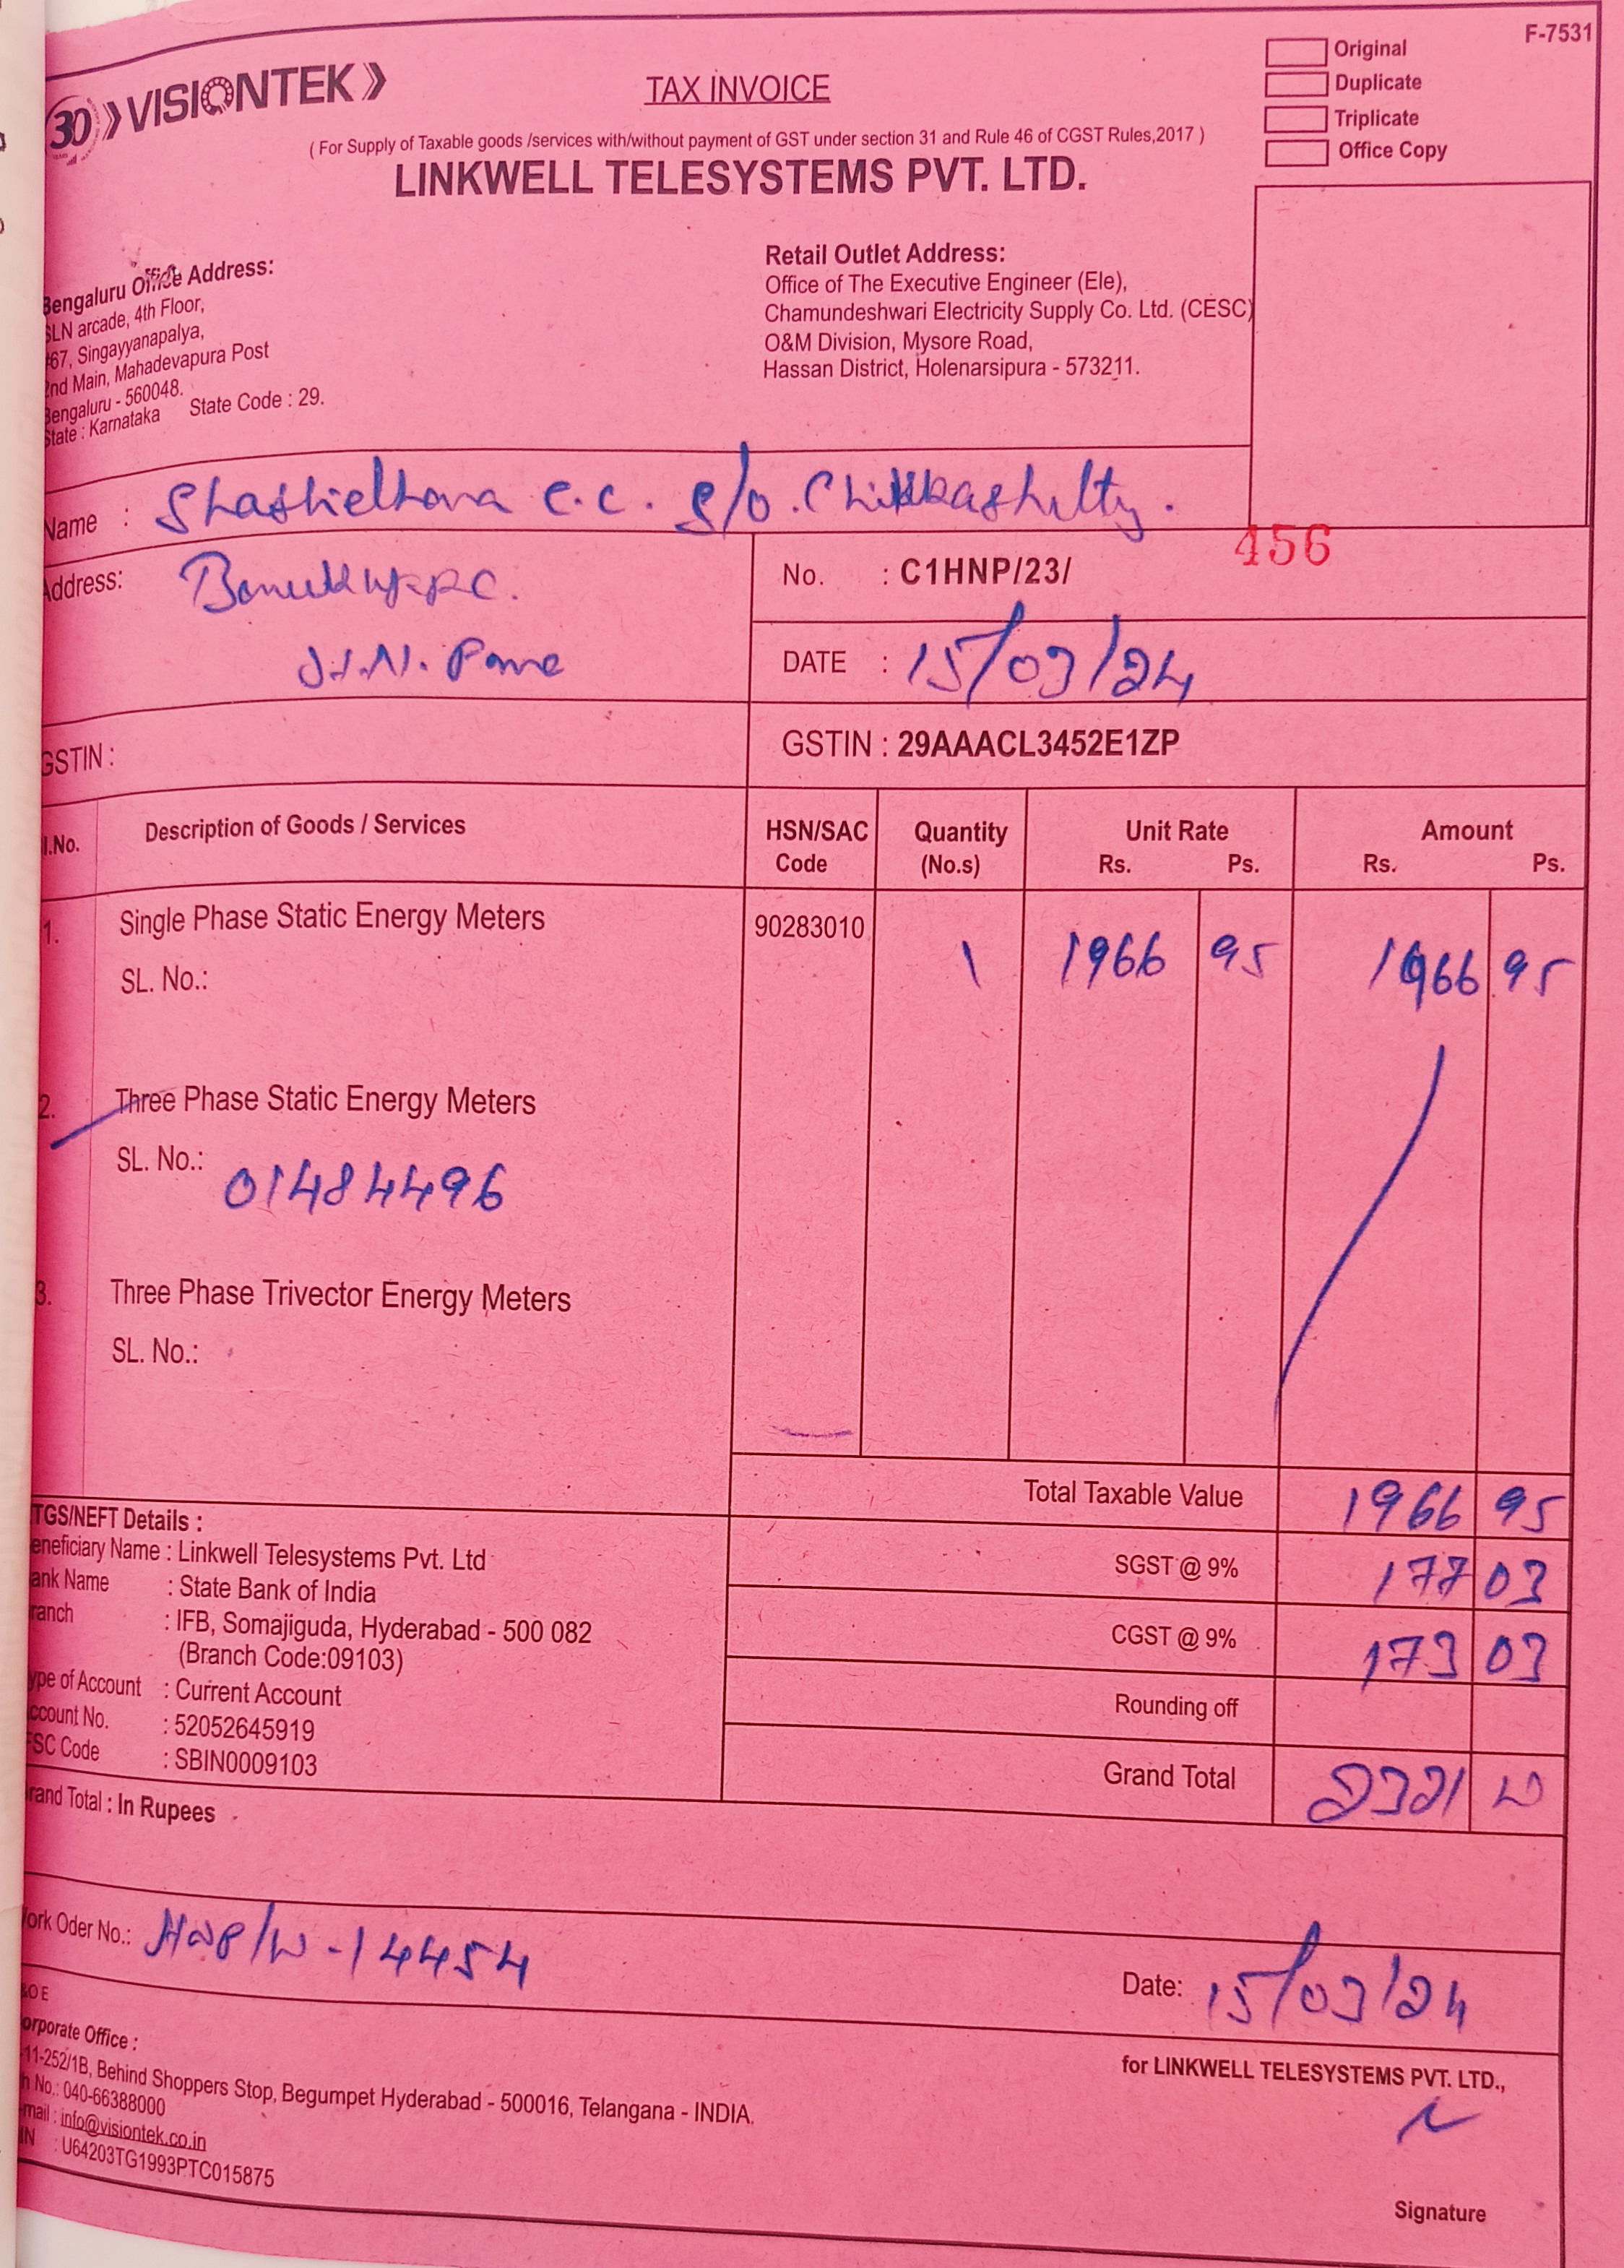 F-7531
Original
Duplicate
Triplicate
Office Copy
30 VISIONTEK
TAX INVOICE
( For Supply of Taxable goods /services with/without payment of GST under section 31 and Rule 46 of CGST Rules,2017 )
LINKWELL TELESYSTEMS PVT. LTD.
Bengaluru Office Address:
SLN arcade, 4th Floor,
67, Singayyanapalya,
2nd Main, Mahadevapura Post
Bengaluru - 560048.
State : Karnataka State Code : 29.
Retail Outlet Address:
Office of The Executive Engineer (Ele),
Chamundeshwari Electricity Supply Co. Ltd. (CESC)
O&M Division, Mysore Road,
Hassan District, Holenarsipura - 573211.
Name : C.C. S/o.
Address:
H.N. Pura
No. : C1HNP/23/ 456
DATE : 15/03/24
GSTIN :
GSTIN : 29AAACL3452E1ZP
l.No. Description of Goods / Services HSN/SAC Code Quantity (No.s) Unit Rate Rs. Ps. Amount Rs. Ps.
1. Single Phase Static Energy Meters 90283010 1 1966 95 1966 95
SL. No.:
2. Three Phase Static Energy Meters
SL. No.: 01484496
3. Three Phase Trivector Energy Meters
SL. No.:
Total Taxable Value 1966 95
SGST @ 9% 177 03
CGST @ 9% 173 03
Rounding off
Grand Total 2321
TGS/NEFT Details :
eneficiary Name : Linkwell Telesystems Pvt. Ltd
ank Name : State Bank of India
ranch : IFB, Somajiguda, Hyderabad - 500 082
(Branch Code:09103)
ype of Account : Current Account
ccount No. : 52052645919
FSC Code : SBIN0009103
rand Total : In Rupees
ork Oder No.: HNP/W-14454
Date: 15/03/24
&OE
orporate Office :
-11-252/1B, Behind Shoppers Stop, Begumpet Hyderabad - 500016, Telangana - INDIA.
h No.: 040-66388000
-mail : info@visiontek.co.in
IN : U64203TG1993PTC015875
for LINKWELL TELESYSTEMS PVT. LTD.,
Signature